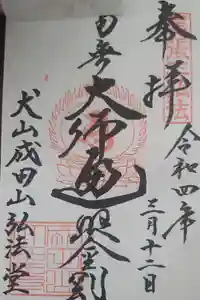 奉拝
令和四年
三月十二日
大師遍照金剛
犬山成田山弘法堂